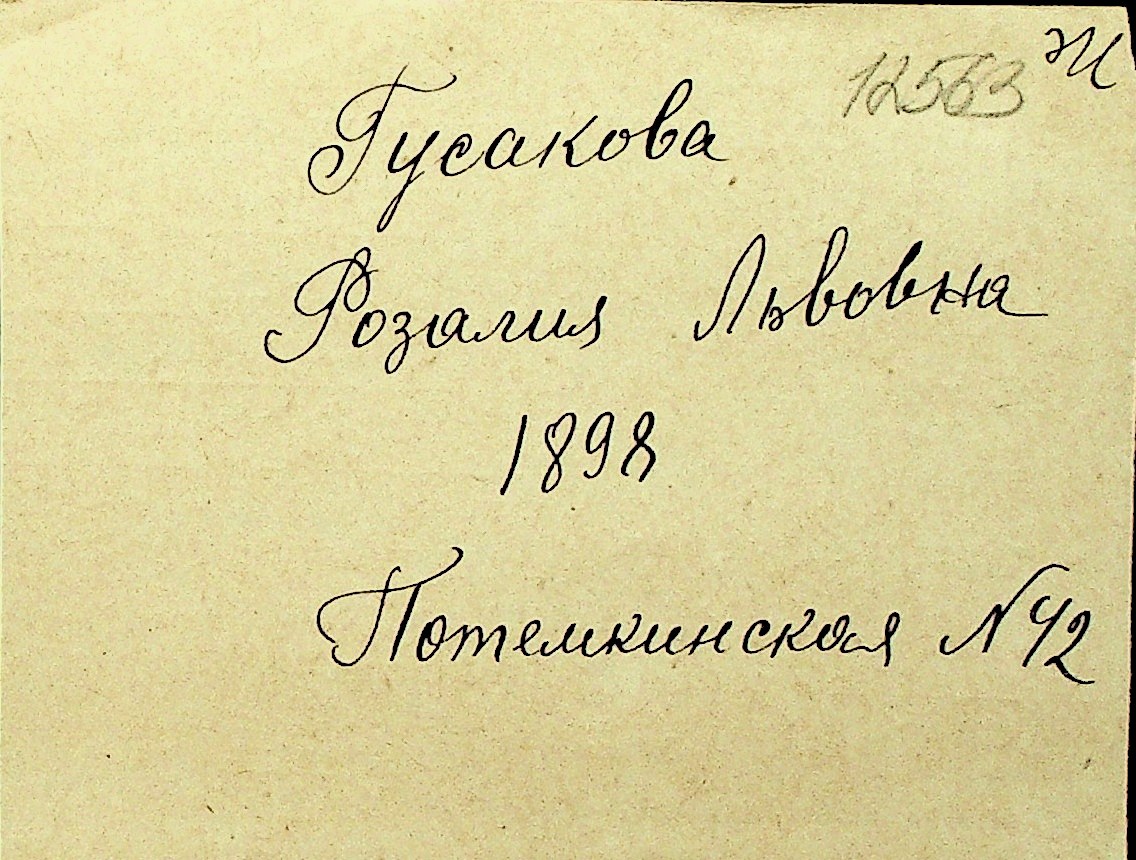 12563 Ж
Гусакова
Розалия Львовна
1898
Потемкинская № 42